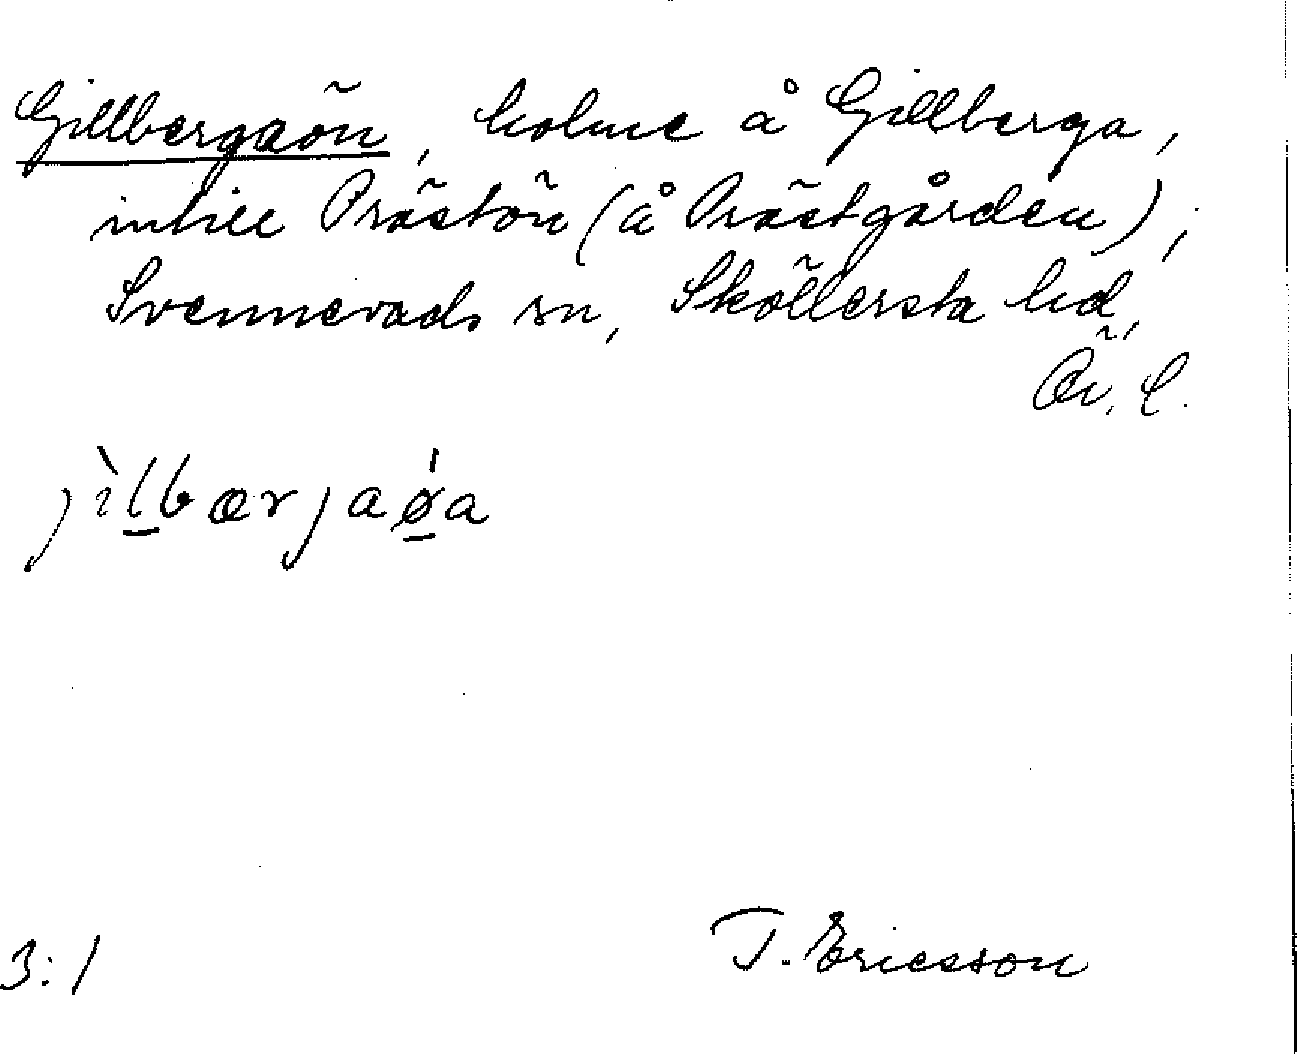 Gillbergaön, holme å Gillberga,
intill Prästön (å Prästgården),
Svennevads sn, Sköllersta hd,
Ör. l.
jìlbærjaǿa
3:1
T. Ericsson